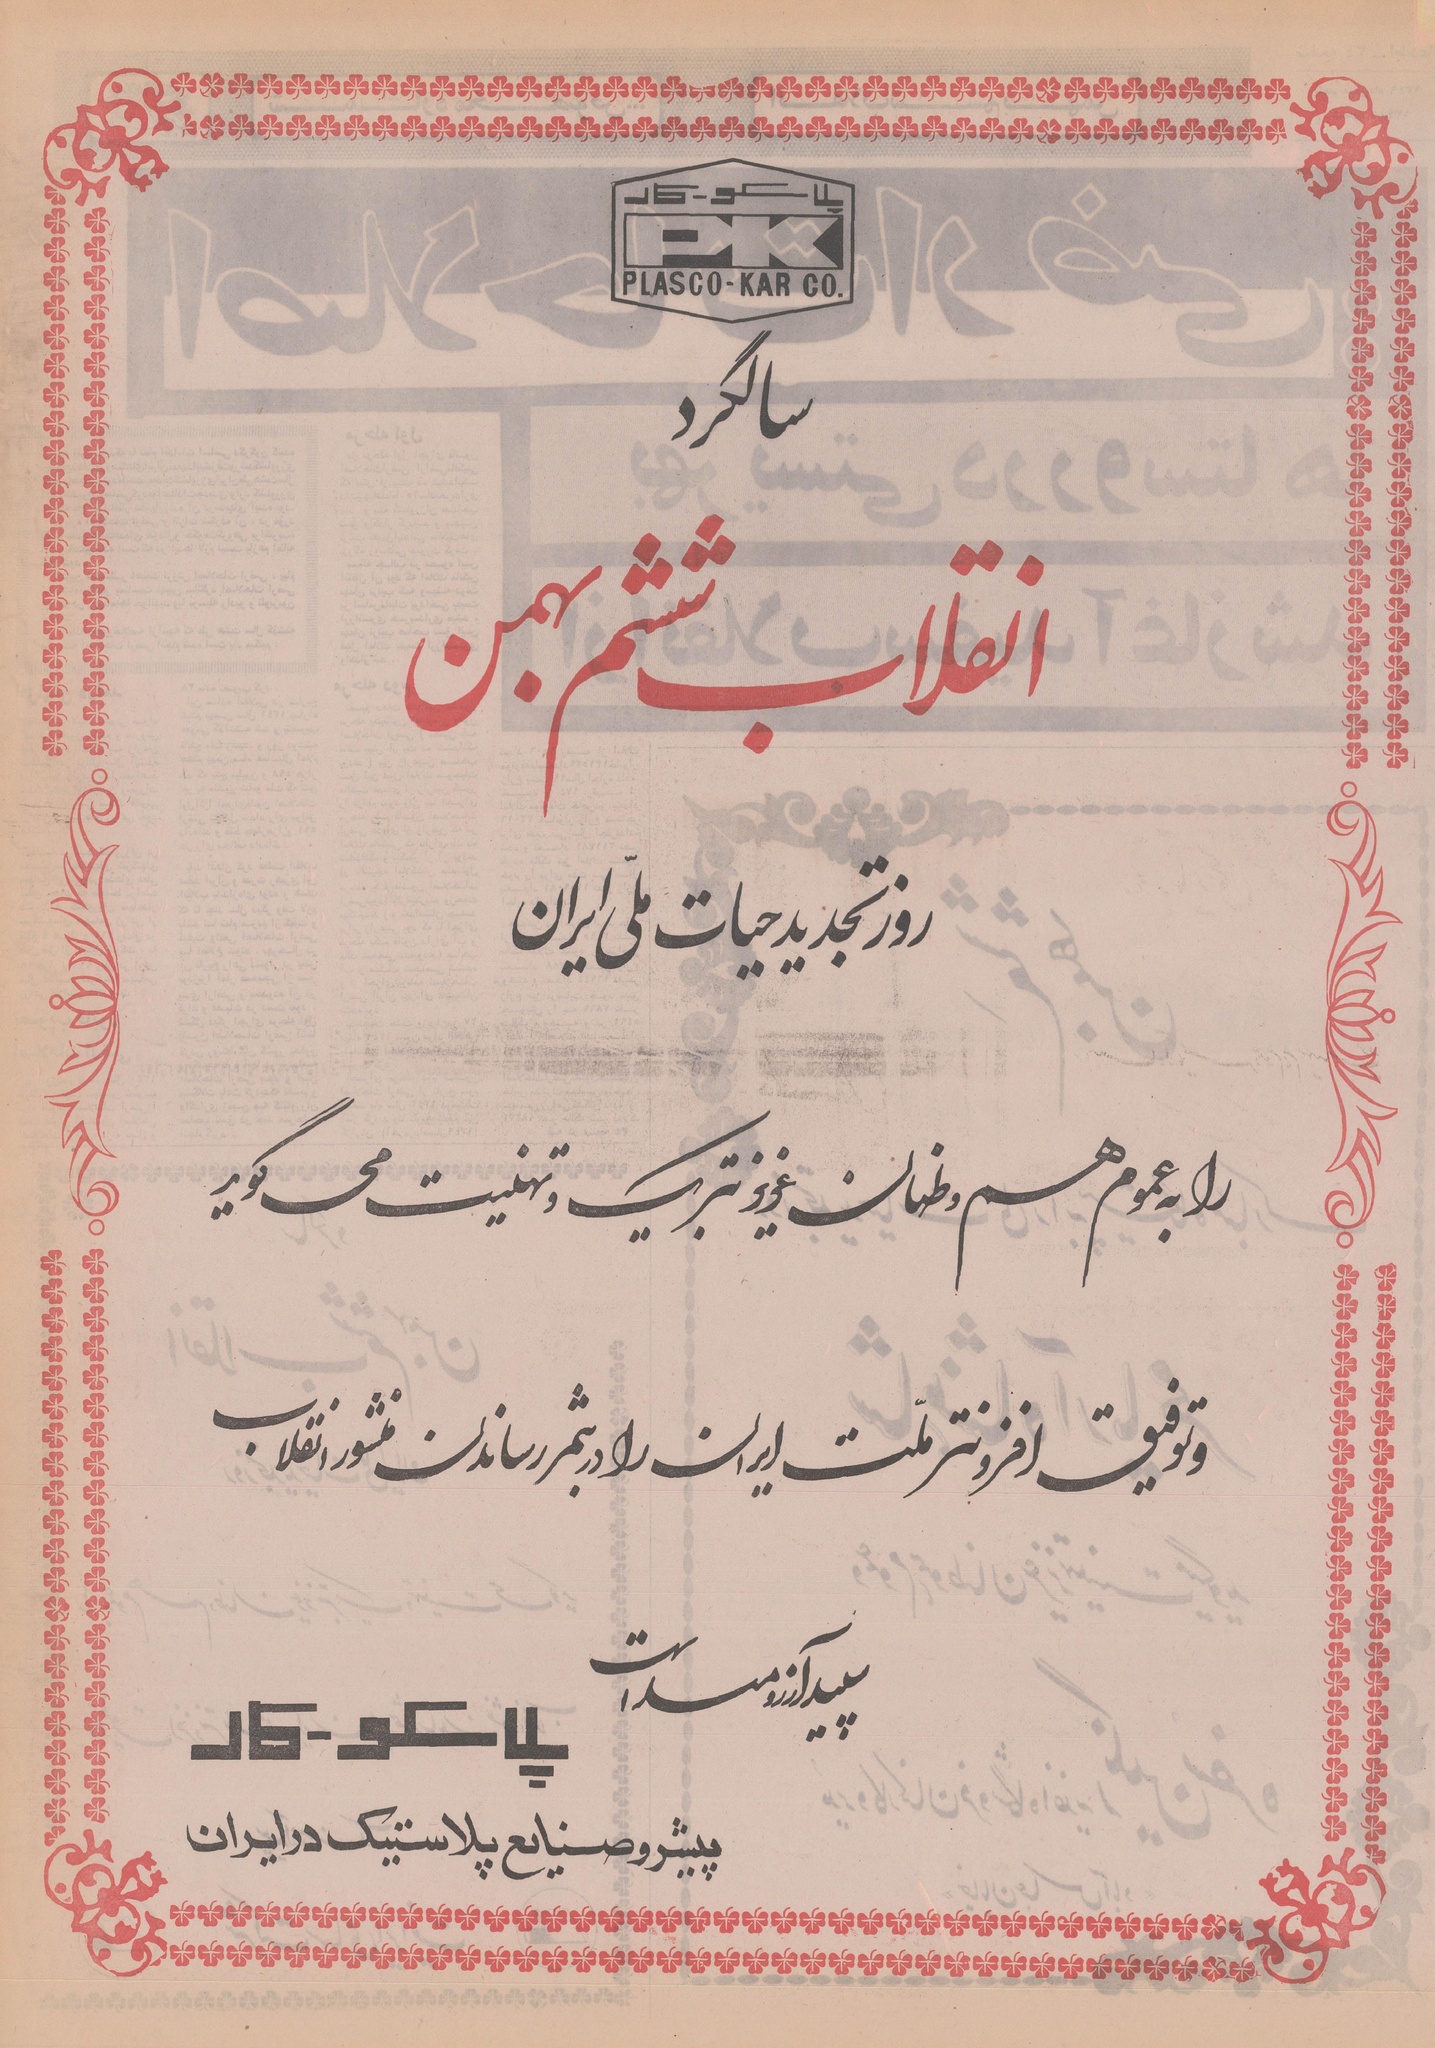 پلاسکو-کار
PK
PLASCO-KAR CO.
سالگرد
انقلاب ششم بهمن
روز تجدید حیات ملّی ایران
را به عموم هم وطنان عزیز تبریک و تهنیت می گوید
و توفیق افزونتر ملّت ایران را در بثمر رساندن منشور انقلاب
آرزومند است
پلاسکو-کار
پیشرو صنایع پلاستیک در ایران